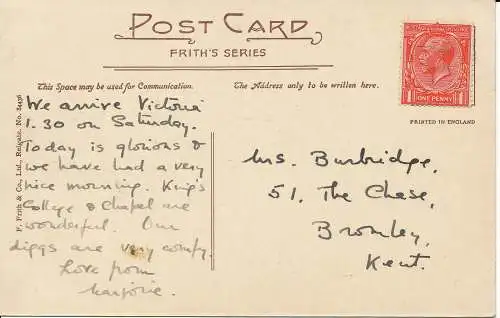 POST CARD
FRITH'S SERIES
This Space may be used for Communication.
The Address only to be written here.
ONE PENNY
PRINTED IN ENGLAND
F. Frith & Co., Ltd., Reigate. No. 54436
We arrive Victoria
1.30 on Saturday.
Today is glorious &
we have had a very
nice morning. King's
College & Chapel are
wonderful. Our
diggs are very comfy.
Love from
Marjorie.
Mrs. Burbridge,
51, The Chase,
Bromley,
Kent.